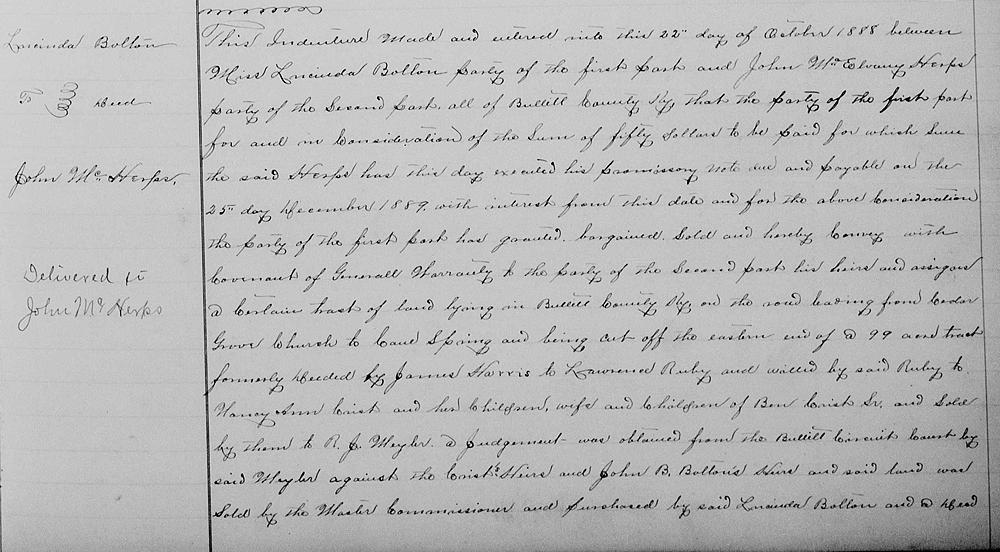 Lucinda Bolton
To Deed
John Mc Herps,
Delivered to
John Mc Herps
This Indenture Made and entered into this 22" day of October 1888 between
Miss Lucinda Bolton party of the first part and John McElvany Herps
party of the Second part. all of Bullitt County Ky, that the party of the first part
for and in Consideration of the Sum of fifty Dollars to be paid for which Sum
the said Herps has this day executed his promissory note due and payable on the
25" day December 1889, with interest from this date and for the above Consideration
the party of the first part has granted. bargained. Sold and hereby Convey with
Covenant of Generall Warranty to the party of the Second part his heirs and assigns
a Certain tract of land lying in Bullitt County Ky, on the road leading from Cedar
Grove Church to Cane Spring and being cut off the eastern end of a 99 acre tract
formerly Deeded by James Harris to Lawrence Ruby and willed by said Ruby to
Nancy Ann Crist and her Children, wife and Children of Ben Crist Sr. and Sold
by them to R. J. Meyler. a Judgement was obtained from the Bullitt Circuit Court by
said Meyler against the Crist's Heirs and John B. Bolton's Heirs and said land was
Sold by the Master Commissioner and purchased by said Lucinda Bolton and a Deed